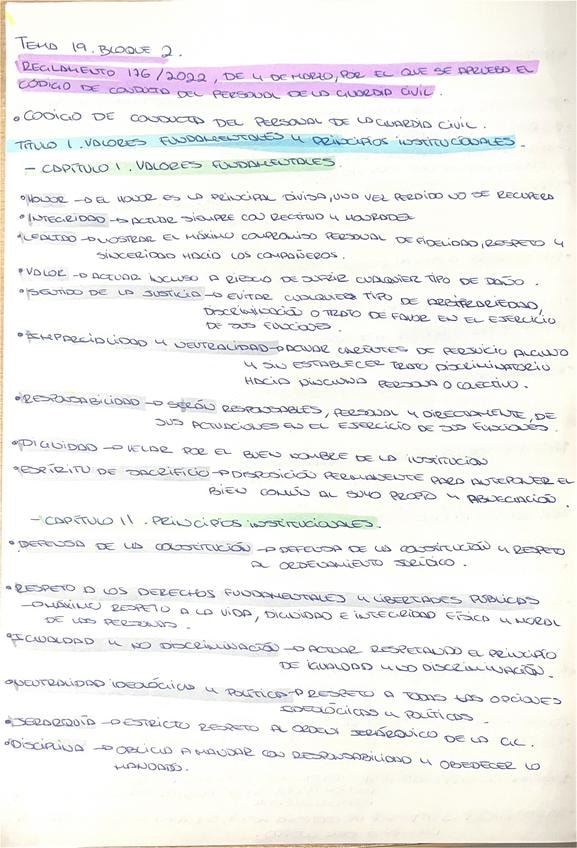 TEMA 19. BLOQUE 2.
REGLAMENTO 176/2022, DE 4 DE MARZO, POR EL QUE SE APRUEBA EL
CÓDIGO DE CONDUCTA DEL PERSONAL DE LA GUARDIA CIVIL.
• CÓDIGO DE CONDUCTA DEL PERSONAL DE LA GUARDIA CIVIL.
TÍTULO I. VALORES FUNDAMENTALES Y PRINCIPIOS INSTITUCIONALES.
- CAPÍTULO I. VALORES FUNDAMENTALES.
• HONOR → EL HONOR ES LA PRINCIPAL DIVISA, UNA VEZ PERDIDO NO SE RECUPERA
• INTEGRIDAD → ACTUAR SIEMPRE CON RECTITUD Y HONRADEZ
• LEALTAD → MOSTRAR EL MÁXIMO COMPROMISO PERSONAL DE FIDELIDAD, RESPETO Y
SINCERIDAD HACIA LOS COMPAÑEROS.
• VALOR → ACTUAR INCLUSO A RIESGO DE SUFRIR CUALQUIER TIPO DE DAÑO.
• SENTIDO DE LA JUSTICIA → EVITAR CUALQUIER TIPO DE ARBITRARIEDAD,
DISCRIMINACIÓN O TRATO DE FAVOR EN EL EJERCICIO
DE SUS FUNCIONES.
• IMPARCIALIDAD Y NEUTRALIDAD → ACTUAR CARENTES DE PERJUICIO ALGUNO
Y SIN ESTABLECER TRATO DISCRIMINATORIO
HACIA NINGUNA PERSONA O COLECTIVO.
• RESPONSABILIDAD → SERÁN RESPONSABLES, PERSONAL Y DIRECTAMENTE, DE
SUS ACTUACIONES EN EL EJERCICIO DE SUS FUNCIONES.
• DIGNIDAD → VELAR POR EL BUEN NOMBRE DE LA INSTITUCIÓN
• ESPÍRITU DE SACRIFICIO → DISPOSICIÓN PERMANENTE PARA ANTEPONER EL
BIEN COMÚN AL SUYO PROPIO Y ABNEGACIÓN.
- CAPÍTULO II. PRINCIPIOS INSTITUCIONALES.
• DEFENSA DE LA CONSTITUCIÓN → DEFENSA DE LA CONSTITUCIÓN Y RESPETO
AL ORDENAMIENTO JURÍDICO.
• RESPETO A LOS DERECHOS FUNDAMENTALES Y LIBERTADES PÚBLICAS
→ MÁXIMO RESPETO A LA VIDA, DIGNIDAD E INTEGRIDAD FÍSICA Y MORAL
DE LAS PERSONAS.
• IGUALDAD Y NO DISCRIMINACIÓN → ACTUAR RESPETANDO EL PRINCIPIO
DE IGUALDAD Y NO DISCRIMINACIÓN.
• NEUTRALIDAD IDEOLÓGICA Y POLÍTICA → RESPETO A TODAS LAS OPCIONES
IDEOLÓGICAS Y POLÍTICAS.
• JERARQUÍA → ESTRICTO RESPETO AL ORDEN JERÁRQUICO DE LA GC.
• DISCIPLINA → OBLIGA A MANDAR CON RESPONSABILIDAD Y OBEDECER LO
MANDADO.